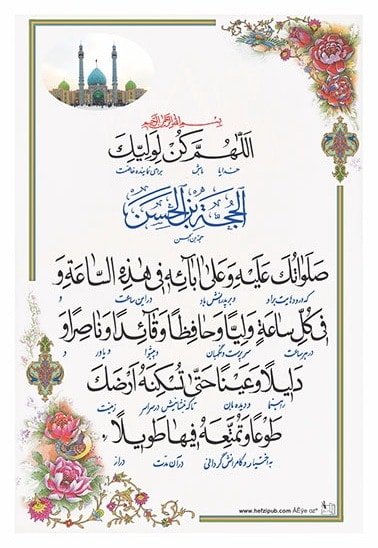 بسم الله الرحمن الرحیم
اَللّهُمَّ كُنْ لِوَلِيِّكَ
خدایا باش برای نماینده خاصت
الحُجَّةِ بنِ الحَسَن
حجة بن الحسن
صَلَواتُكَ عَلَيْهِ وَعَلى ابائِهِ فى هذِهِ السّاعَةِ وَ
که درودهایت بر او و بر پدرانش باد در این ساعت و
فى كُلِّ ساعَةٍ وَلِيًّا وَحافِظًا وَقآئِدًا وَناصِرًا وَ
در هر ساعت سرپرست و نگهبان و پیشوا و یاور و
دَليلًا وَعَيْنًا حَتّى تُسْكِنَهُ اَرْضَكَ
راهنما و دیده بان تا که بنشانیش در سراسر زمینت
طَوْعًا وَتُمَتِّعَهُ فيها طَويلًا
به اختیار و کامرانش گردانی در آن مدت دراز
www.hefzipub.com